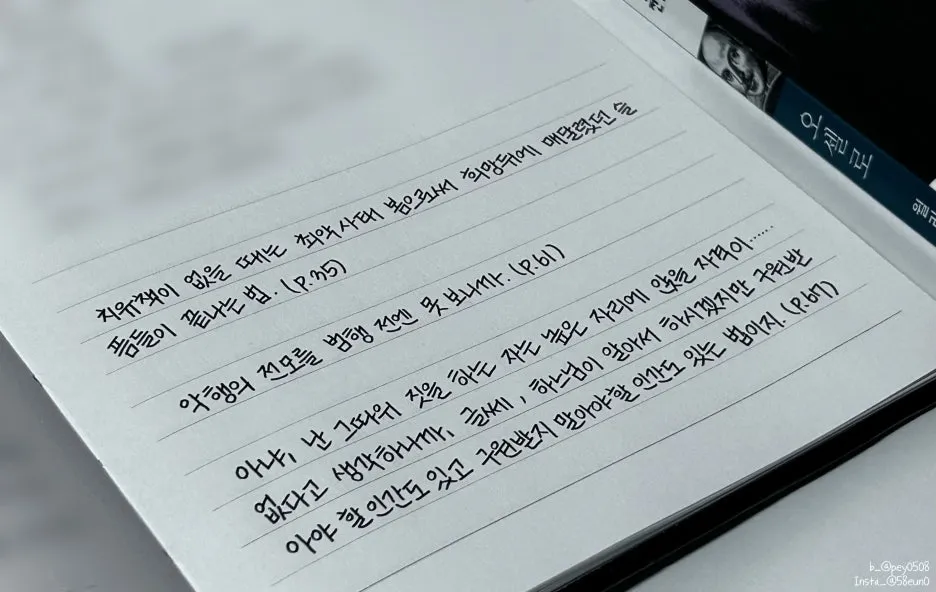 치유책이 없을 때는 최악사태 봄으로써 희망뒤에 매달렸던 슬
픔들이 끝나는 법. (P.35)
악행의 전모를 범행 전엔 못 보니까. (P.61)
아냐, 난 그따위 짓을 하는 자는 높은 자리에 앉을 자격이……
없다고 생각하니까, 글쎄, 하느님이 알아서 하시겠지만 구원받
아야 할 인간도 있고 구원받지 말아야할 인간도 있는 법이지. (P.67)
오셀로
b_@pey0508
Insta_@58eun0